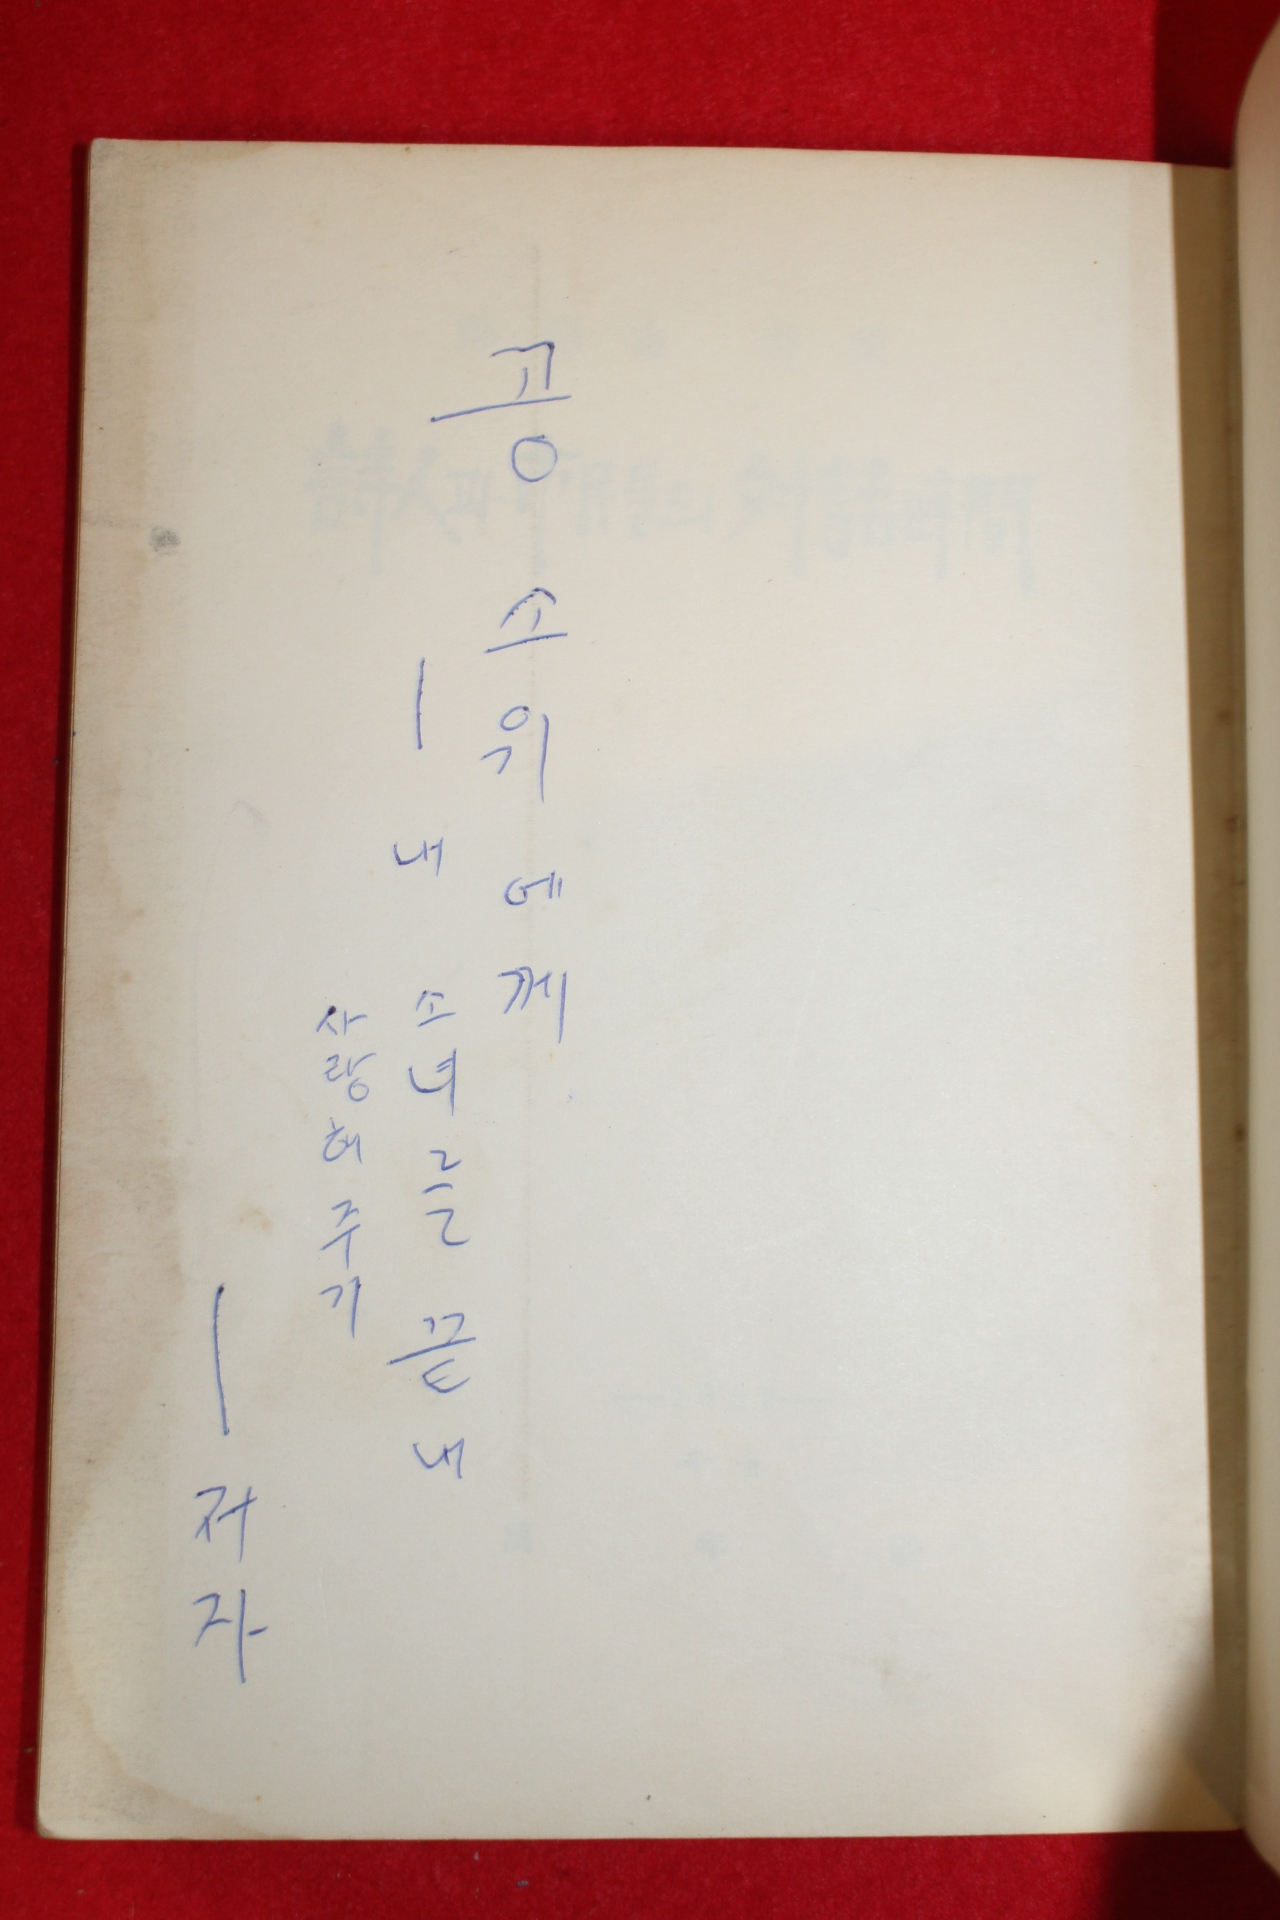 공 소위에께
— 내 소녀를 끝내
사랑해 주기
— 저자